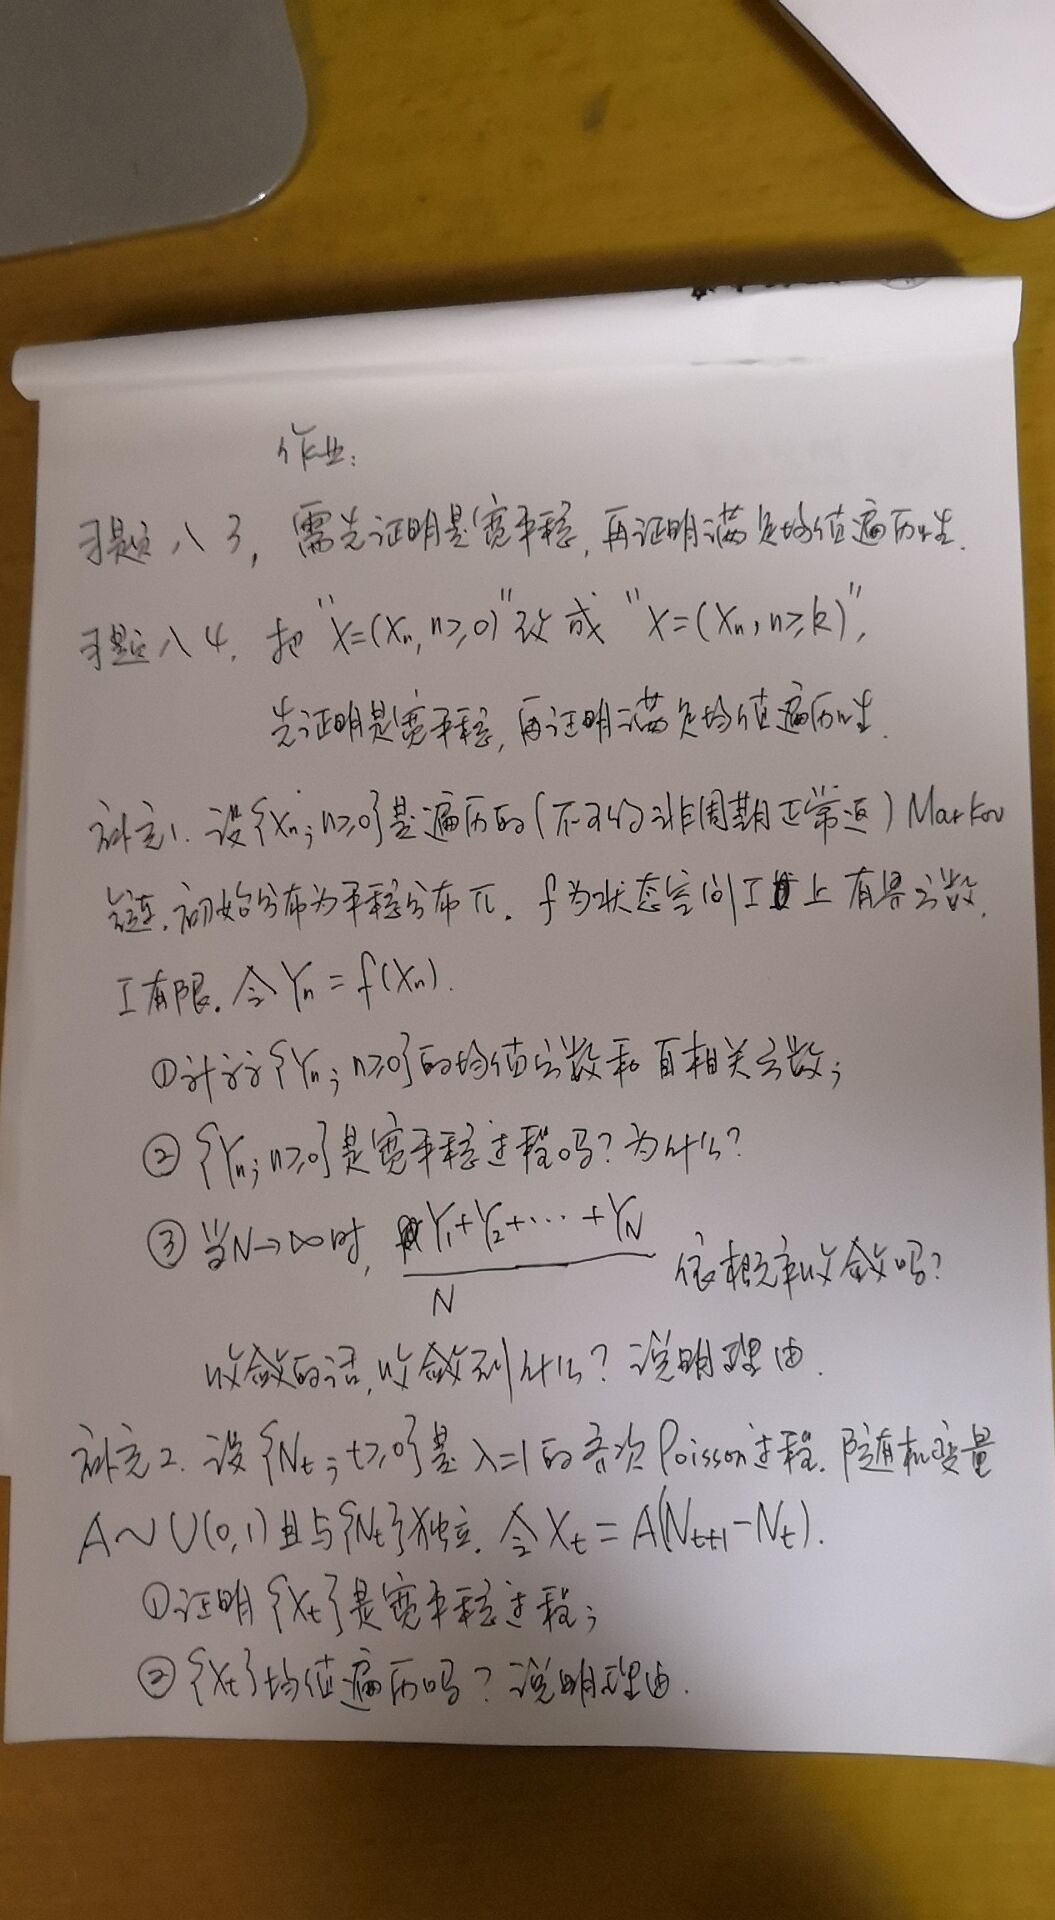 作业:
习题八 3, 需先证明是宽平稳, 再证明满足均值遍历性.
习题八 4. 把"X=(Xn, n≥0)"改成"X=(Xn, n≥k)",
先证明是宽平稳, 再证明满足均值遍历性.
补充1. 设{Xn; n≥0}是遍历的(不可约非周期正常返)Markov
链, 初始分布为平稳分布π. f为状态空间I上有界函数,
I有限. 令Yn = f(Xn).
①计算{Yn; n≥0}的均值函数和自相关函数;
②{Yn; n≥0}是宽平稳过程吗? 为什么?
③当N→∞时, (Y1+Y2+···+YN)/N 依概率收敛吗?
收敛的话, 收敛到什么? 说明理由.
补充2. 设{Nt; t≥0}是λ=1的齐次Poisson过程. 随机变量
A~U(0,1)且与{Nt}独立. 令Xt = A(Nt+1-Nt).
①证明{Xt}是宽平稳过程;
②{Xt}均值遍历吗? 说明理由.